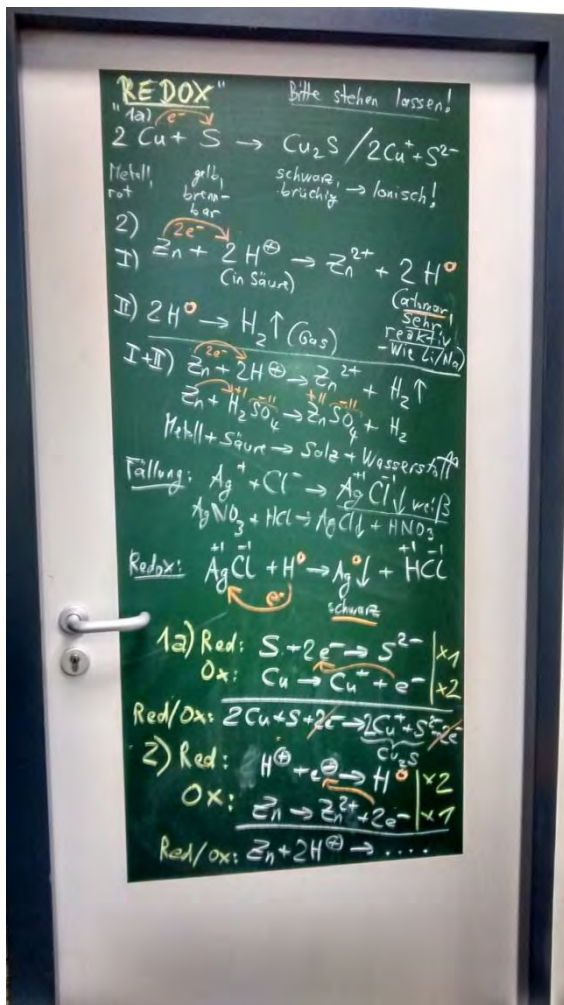 "REDOX" Bitte stehen lassen!
1a) e⁻
2 Cu + S → Cu₂S / 2Cu⁺ + S²⁻
Metall, rot gelb, brenn-bar schwarz, brüchig → Ionisch!
2)
2e⁻
I) Zn + 2H⊕ → Zn²⁺ + 2H°
(in Säure) (atomar, sehr reaktiv - Wie Li/Na)
II) 2H° → H₂↑ (Gas)
2e⁻
I+II) Zn + 2H⊕ → Zn²⁺ + H₂↑
+I -II +II -II
Zn + H₂SO₄ → ZnSO₄ + H₂
Metall + Säure → Salz + Wasserstoff
Fällung: Ag⁺ + Cl⁻ → AgCl↓ weiß
+I -I
AgNO₃ + HCl → AgCl↓ + HNO₃
+1 -1 +1 -1
Redox: AgCl + H° → Ag°↓ + HCl
e⁻ schwarz
1a) Red: S + 2e⁻ → S²⁻ | x1
Ox: Cu → Cu⁺ + e⁻ | x2
Red/Ox: 2Cu + S + 2e⁻ → 2Cu⁺ + S²⁻ + 2e⁻
Cu₂S
2) Red: H⊕ + e⊖ → H° | x2
OX: Zn → Zn²⁺ + 2e⁻ | x1
Red/ox: Zn + 2H⊕ → ....